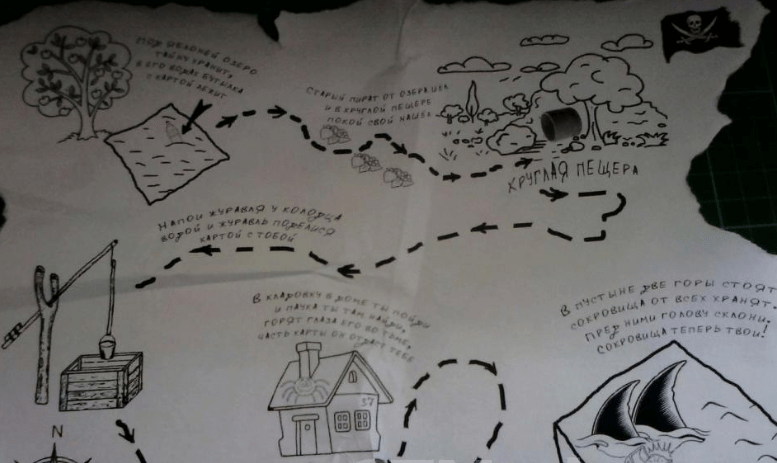 ПОД ЯБЛОНЕЙ ОЗЕРО
ТАЙНУ ХРАНИТ,
В ЕГО ВОДАХ БУТЫЛКА
С КАРТОЙ ЛЕЖИТ
СТАРЫЙ ПИРАТ ОТ ОЗЕРА ШЕЛ
И В КРУГЛОЙ ПЕЩЕРЕ
ПОКОЙ СВОЙ НАШЕЛ
КРУГЛАЯ ПЕЩЕРА
НАПОИ ЖУРАВЛЯ У КОЛОДЦА
ВОДОЙ И ЖУРАВЛЬ ПОДЕЛИТСЯ
КАРТОЙ С ТОБОЙ
В КЛАДОВКУ В ДОМЕ ТЫ ПОЙДИ
И ПАУКА ТЫ ТАМ НАЙДИ.
ГОРЯТ ГЛАЗА ЕГО ВО ТЬМЕ,
ЧАСТЬ КАРТЫ ОН ОТДАСТ ТЕБЕ
В ПУСТЫНЕ ДВЕ ГОРЫ СТОЯТ
СОКРОВИЩА ОТ ВСЕХ ХРАНЯТ.
ПРЕД НИМИ ГОЛОВУ СКЛОНИ.
СОКРОВИЩА ТЕПЕРЬ ТВОИ!
37
N